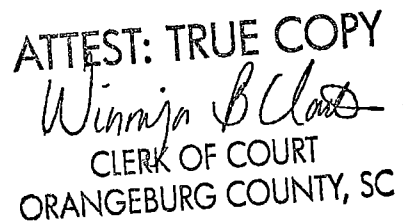 ATTEST: TRUE COPY
Winnifa B Clark
CLERK OF COURT
ORANGEBURG COUNTY, SC